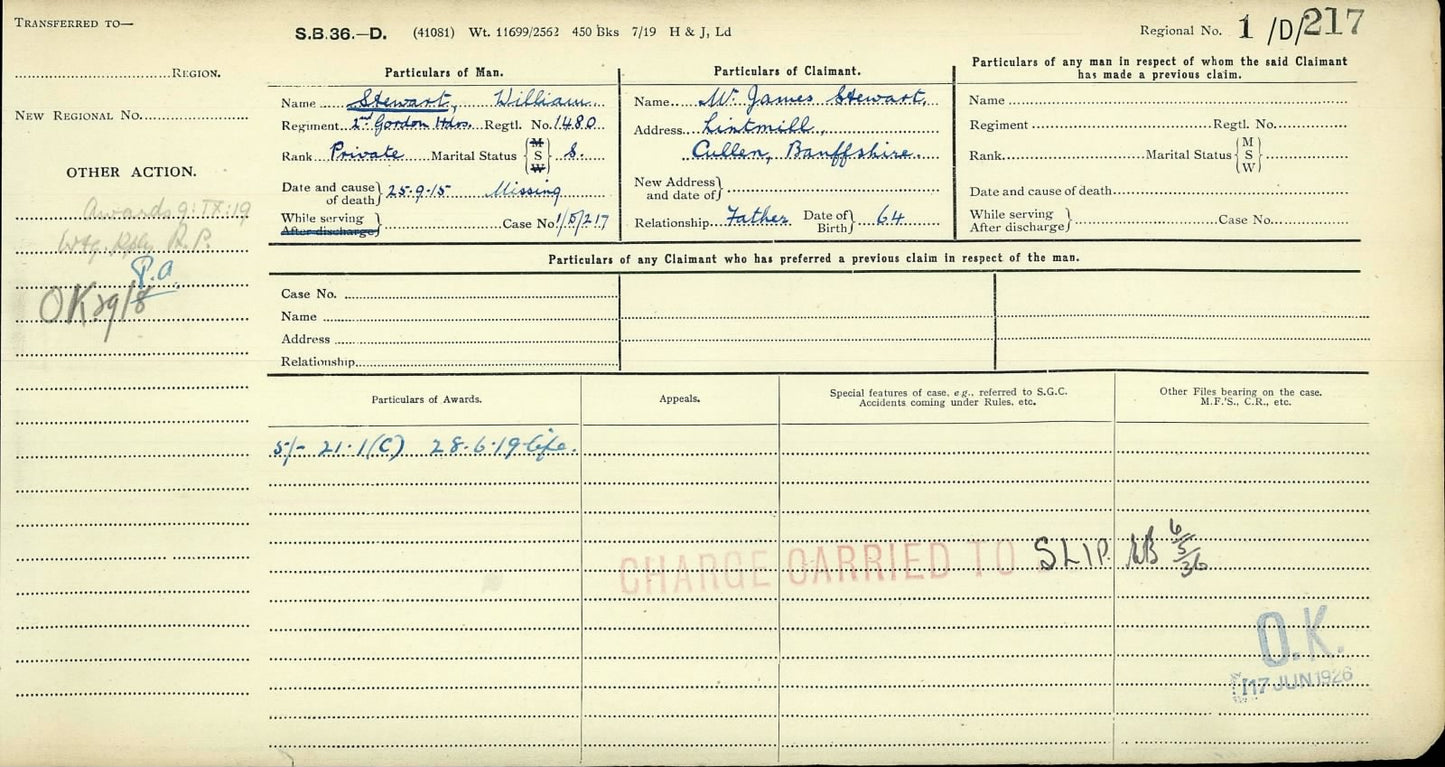 TRANSFERRED TO—
S.B.36.—D. (41081) Wt. 11699/2562 450 Bks 7/19 H & J, Ld
Regional No. 1 /D/217
REGION.
NEW REGIONAL No.
OTHER ACTION.
Awards 9:IX:19
R.P.
P.a.
OK 29/8
Particulars of Man.
Name Stewart, William
Regiment 2nd Gordon Hdrs. Regtl. No. 1480
Rank Private Marital Status { M S W } S.
Date and cause of death } 25.9.15 Missing
While serving
After discharge } Case No 1/5/217
Particulars of Claimant.
Name Mr James Stewart,
Address Lintmill,
Cullen, Banffshire.
New Address and date of }
Relationship Father Date of Birth } 64
Particulars of any man in respect of whom the said Claimant
has made a previous claim.
Name
Regiment Regtl. No.
Rank Marital Status { M S W }
Date and cause of death
While serving
After discharge } Case No.
Particulars of any Claimant who has preferred a previous claim in respect of the man.
Case No.
Name
Address
Relationship
Particulars of Awards.
Appeals.
Special features of case, e.g., referred to S.G.C.
Accidents coming under Rules, etc.
Other Files bearing on the case.
M.F.'S., C.R., etc.
5/- 21.1(C) 28.6.19 life.
CHARGE CARRIED TO SLIP 6/5/36
O.K.
17 JUN 1926